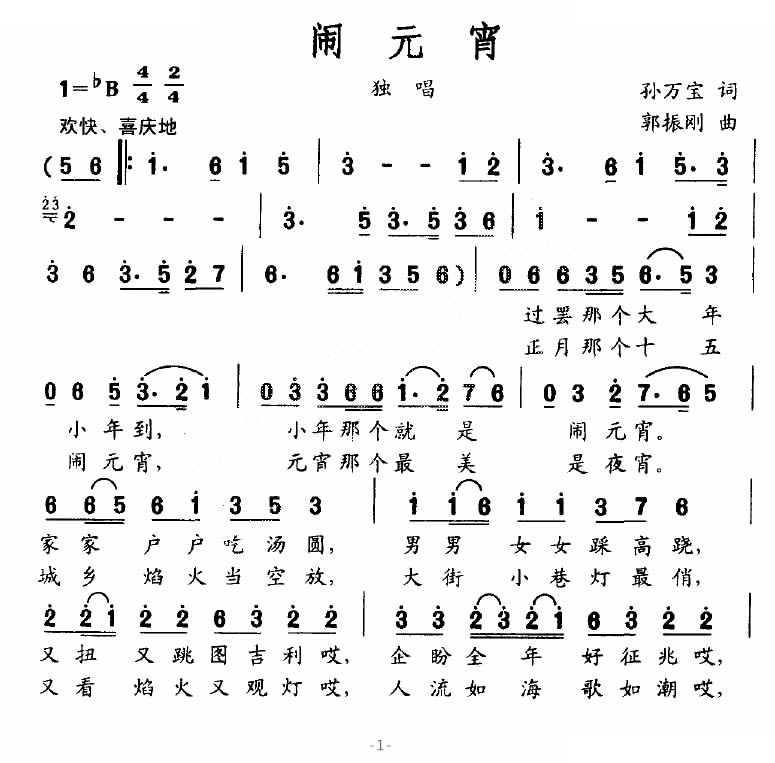 闹 元 宵
1=♭B 4/4 2/4
独 唱
孙万宝 词
欢快、喜庆地
郭振刚 曲
(5 6 ‖: i· 6 i 5 | 3 - - i 2 | 3· 6 i 5· 3 |
23 2 - - - | 3· 5 3· 5 3 6 | i - - i 2 |
3 6 3· 5 2 7 | 6· 6 i 3 5 6) | 0 6 6 3 5 6· 5 3 |
过罢那个大 年
正月那个十 五
0 6 5 3· 2 i | 0 3 3 6 6 i· 2 7 6 | 0 3 2 7· 6 5 |
小 年 到, 小年那个就 是 闹 元 宵。
闹 元 宵, 元宵那个最 美 是 夜 宵。
6 6 5 6 i 3 5 3 | i i 6 i i 3 7 6 |
家 家 户 户 吃 汤 圆, 男 男 女 女 踩 高 跷,
城 乡 焰 火 当 空 放, 大 街 小 巷 灯 最 俏,
2 2 i 2 2 6 3 2 2 | 3 3 2 3 2 i 6 3 2 2 |
又 扭 又 跳 图 吉 利 哎, 企 盼 全 年 好 征 兆 哎,
又 看 焰 火 又 观 灯 哎, 人 流 如 海 歌 如 潮 哎,
-1-